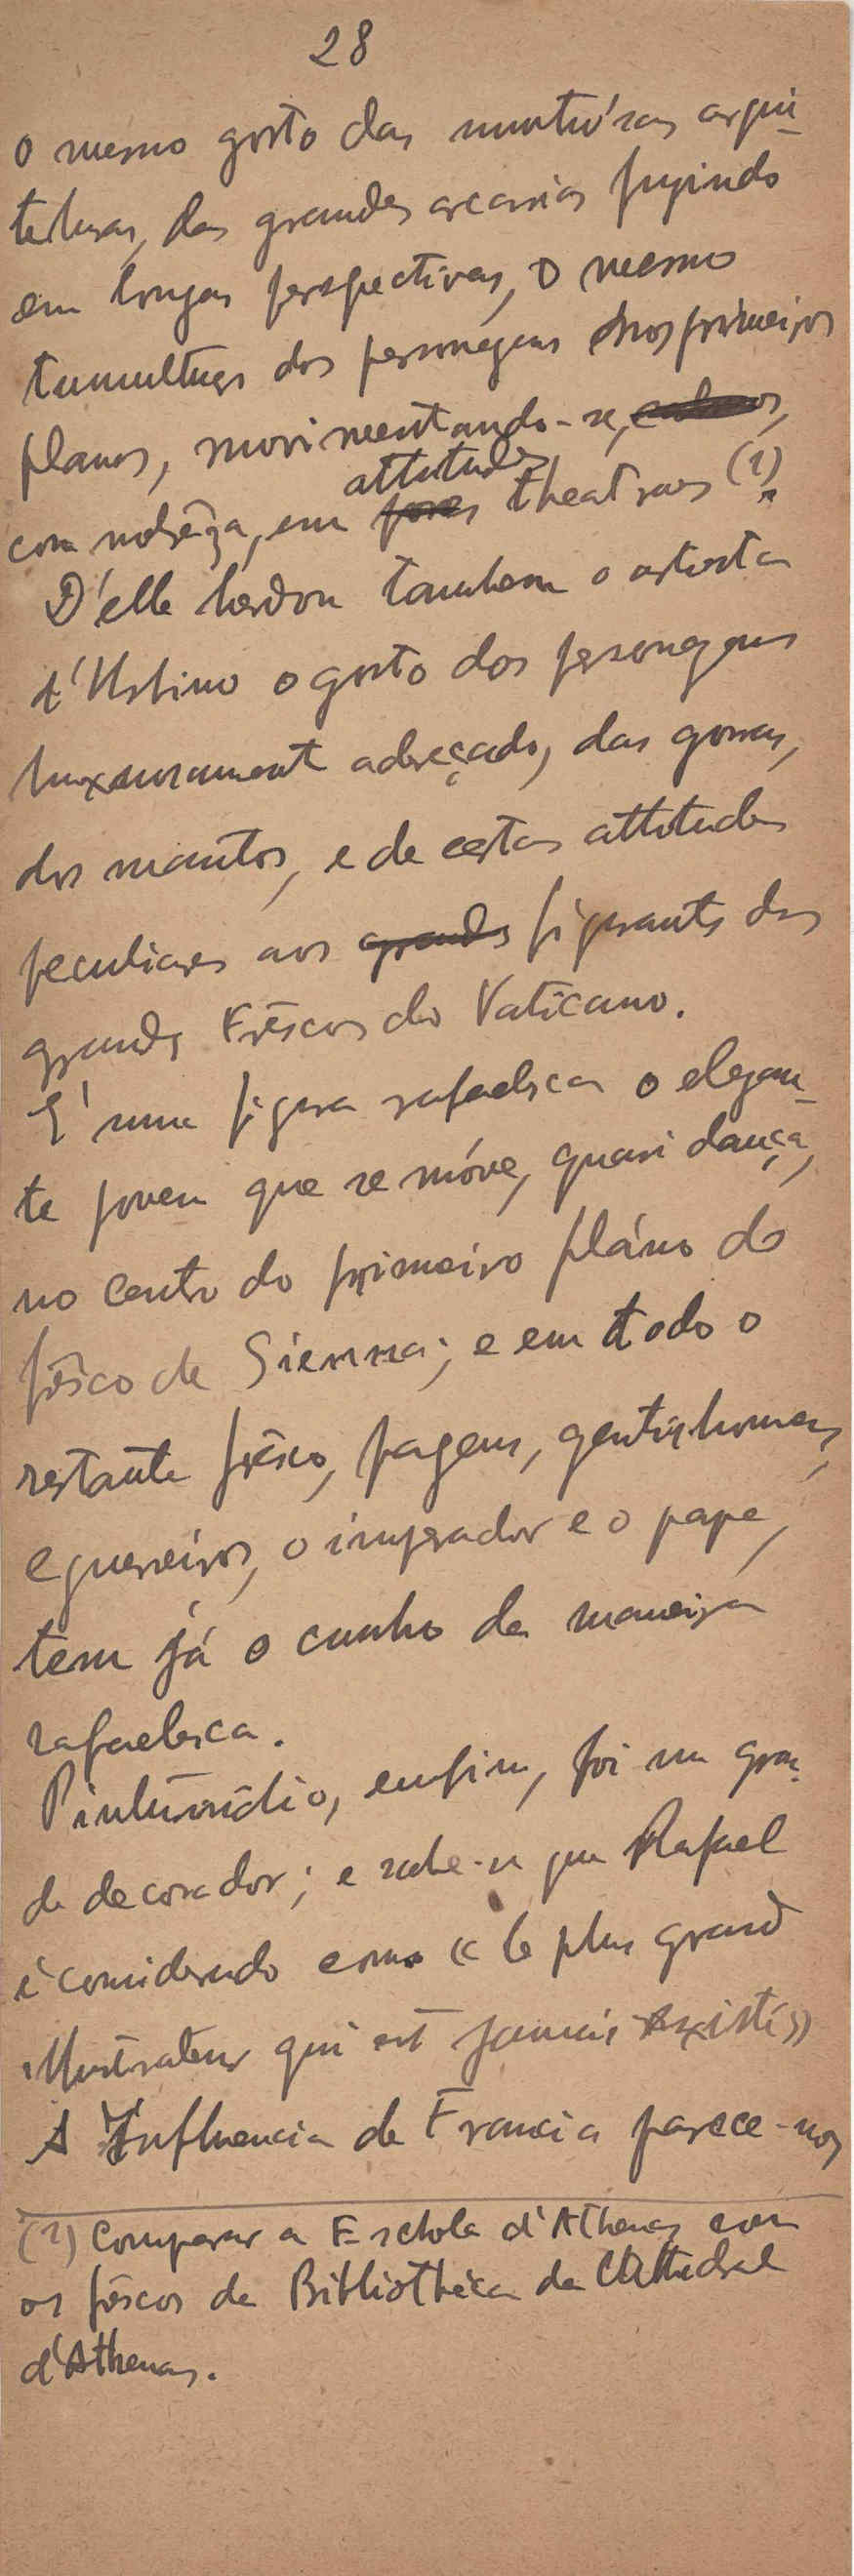 28
o mesmo gosto das sumtuósas arqui-
tecturas, das grandes arcarias fugindo
em longas perspectivas, o mesmo
tumultuar dos personagens nos primeiros
planos, movimentando-se,
com nobrêza, em attitudes theatraes (1).
D'elle herdou tambem o artista
d'Urbino o gosto dos personagens
luxuosamente adereçados, das gorras,
dos mantos, e de certas attitudes
peculiares aos grandes figurants dos
grandes Frêscos do Vaticano.
E' uma figura rafaelesca o elegan-
te jovem que se móve, quasi dança,
no centro do primeiro pláno do
frêsco de Sienna; e em todo o
restante frêsco, pagens, gentishomens,
e guerreiros, o imperador e o papa,
tem já o cunho da maneira
rafaelesca.
Pinturichio, emfim, foi um gran-
de decorador; e sabe-se que Rafael
é considerado como « le plus grand
illustrateur qui ait jamais existé »
A Influencia de Francia parece-nos
(1) Comparar a Eschola d'Athenas com
os frêscos da Bibliothéca da Cathedral
d'Athenas.